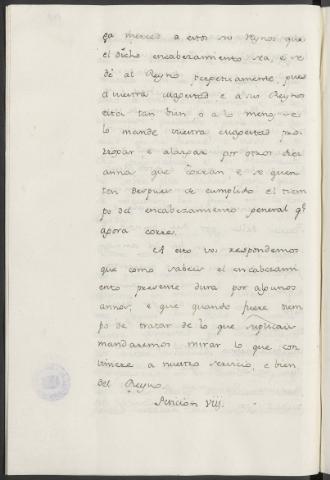 ga merced a estos sus Reynos que
el dicho encabezamiento sea, e se
dé al Reyno perpetuamente, pues
a vuestra magestad e a sus Reynos
está tan bien o a lo menos se
lo mande vuestra magestad pro-
rrogar e alargar por otros diez
annos que corran e se quen-
ten despues de cumplido el tiem
po del encabezamiento general qe
agora corre.
A esto vos respondemos
que como sabeis el encabezami
ento presente dura por algunos
annos, e que quando fuere tiem
po de tratar de lo que suplicais
mandaremos mirar lo que con
viniere a nuestro servicio, e bien
del Reyno.
Peticion VIII.